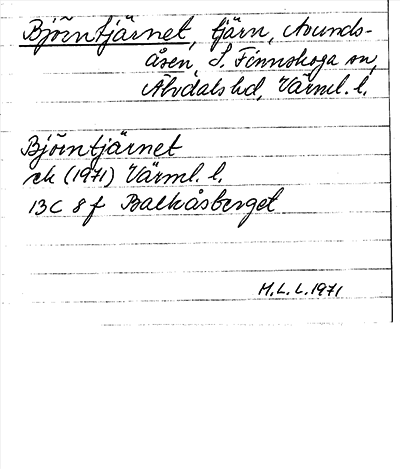 Björntjärnet, tjärn, Avunds-
åsen, S. Finnskoga sn,
Älvdals hd, Värml. l.
Björntjärnet
ek (1971) Värml. l.
13C 8f Balkåsberget
M.L.L. 1971